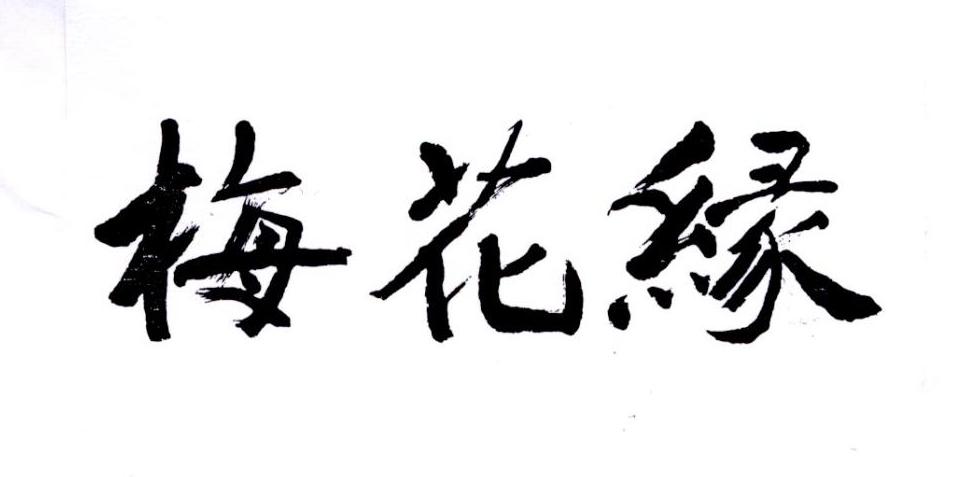 梅花緣